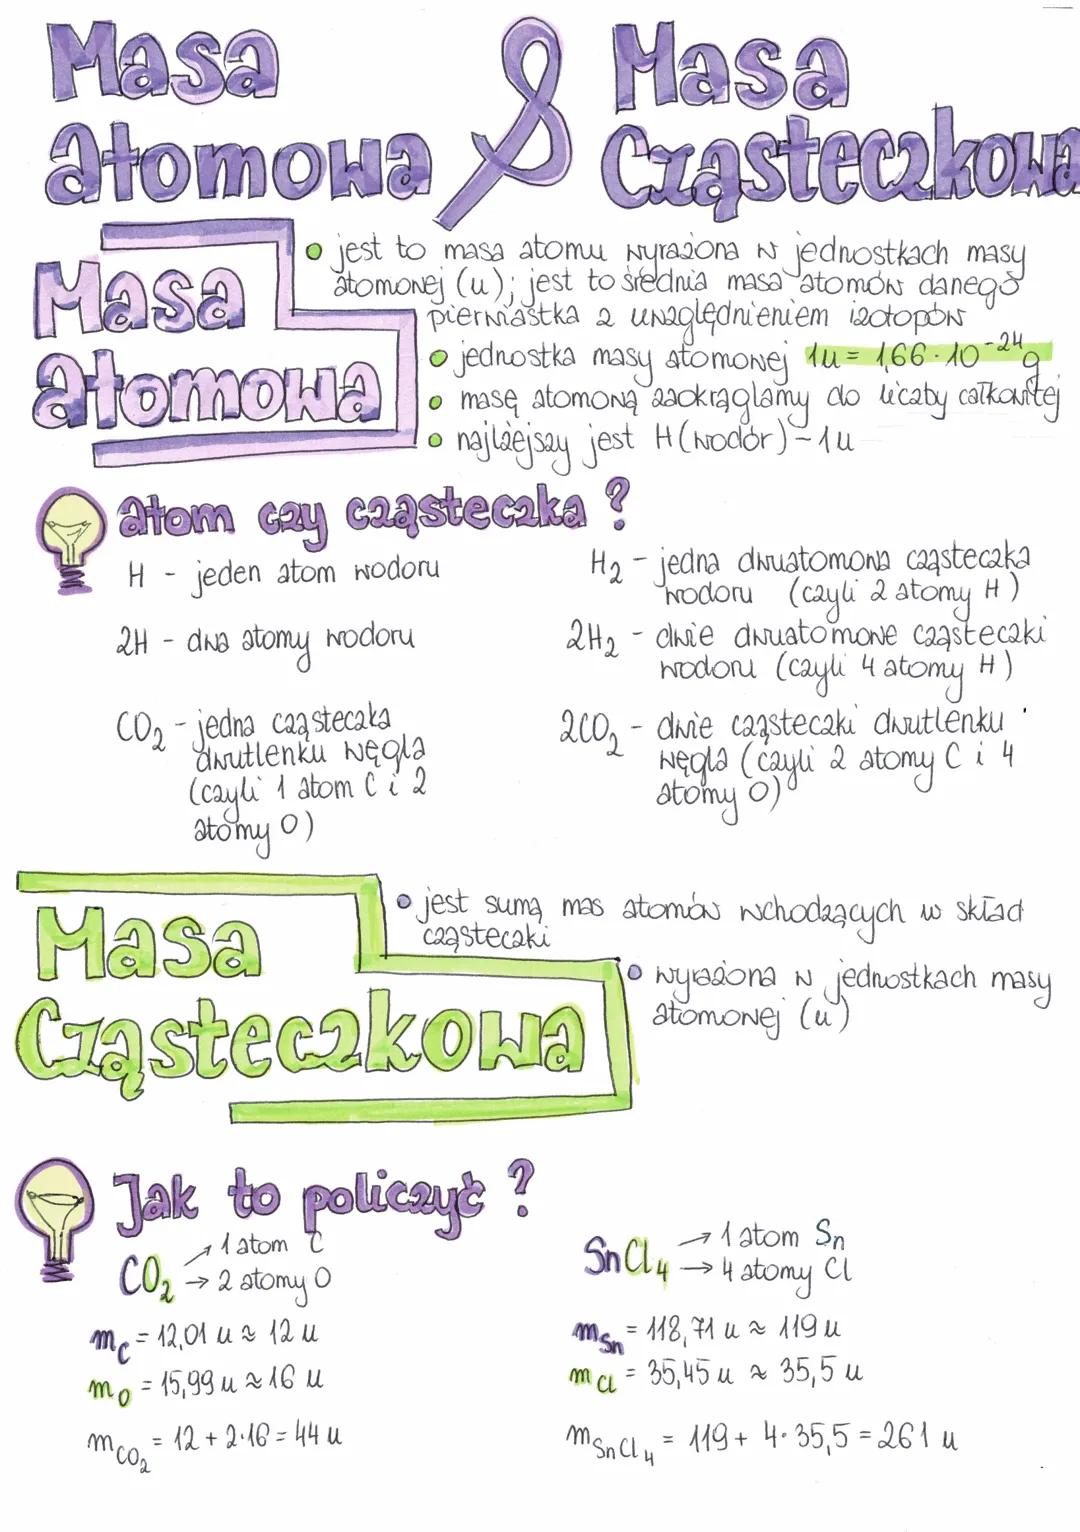 Masa atomowa & Masa Cząsteczkowa
Masa atomowa
• jest to masa atomu wyrażona w jednostkach masy
atomowej (u); jest to średnia masa atomów danego
pierwiastka z uwzględnieniem izotopów
• jednostka masy atomowej 1u = 1,66 · 10⁻²⁴ g
• masę atomową zaokrąglamy do liczby całkowitej
• najlżejszy jest H (wodór) - 1u
atom czy cząsteczka ?
H - jeden atom wodoru
H₂ - jedna dwuatomowa cząsteczka
wodoru (czyli 2 atomy H)
2H - dwa atomy wodoru
2H₂ - dwie dwuatomowe cząsteczki
wodoru (czyli 4 atomy H)
CO₂ - jedna cząsteczka
dwutlenku węgla
(czyli 1 atom C i 2
atomy O)
2CO₂ - dwie cząsteczki dwutlenku
węgla (czyli 2 atomy C i 4
atomy O)
Masa Cząsteczkowa
• jest sumą mas atomów wchodzących w skład
cząsteczki
• wyrażona w jednostkach masy
atomowej (u)
Jak to policzyć ?
CO₂ → 1 atom C
→ 2 atomy O
m_C = 12,01 u ≈ 12 u
m_O = 15,99 u ≈ 16 u
m_CO₂ = 12 + 2·16 = 44 u
SnCl₄ → 1 atom Sn
→ 4 atomy Cl
m_Sn = 118,71 u ≈ 119 u
m_Cl = 35,45 u ≈ 35,5 u
m_SnCl₄ = 119 + 4·35,5 = 261 u